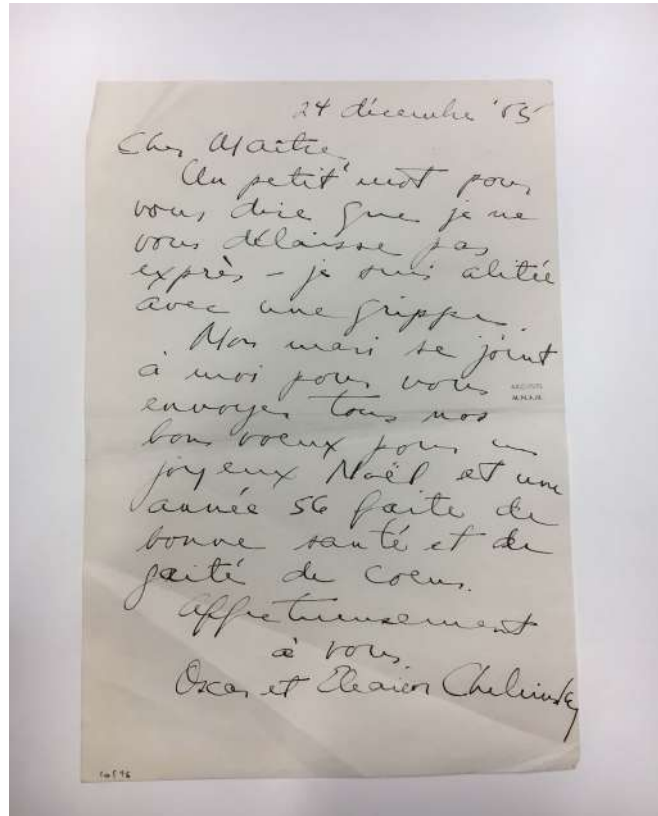 24 décembre '55
Cher Maître,
Un petit mot pour
vous dire que je ne
vous délaisse pas
exprès – je suis alitée
avec une grippe.
Mon mari se joint
à moi pour vous
envoyer tous nos
bons voeux pour un
joyeux Noël et une
année 56 faite de
bonne santé et de
gaité de coeur.
Affectueusement
à vous,
Oscar et Eleanor Chelimsky
ARCHIVES
M.N.A.M.